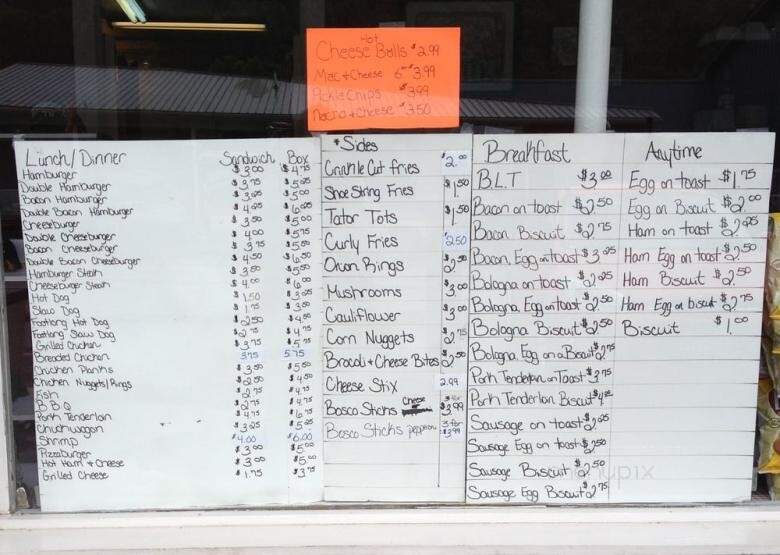 Hot
Cheese Balls $2.99
Mac + Cheese 6 - $3.99
Pickle Chips $3.99
Nacho + Cheese $3.50
Lunch/Dinner Sandwich Box
Hamburger $3.00 $4.75
Double Hamburger $3.75 $5.25
Bacon Hamburger $5.00
Double Bacon Hamburger $4.25 $6.25
Cheeseburger $3.50 $5.00
Double Cheeseburger $4.00 $5.75
Bacon Cheeseburger $3.75 $5.50
Double Bacon Cheeseburger $4.50 $6.50
Hamburger Steak $3.50 $5.50
Cheeseburger Steak $4.00 $6.00
Hot Dog $1.50 $3.25
Slaw Dog $1.75 $3.50
Footlong Hot Dog $2.50 $4.50
Footlong Slaw Dog $2.75 $4.75
Grilled Chicken $3.75 $5.75
Breaded Chicken 3.75 5.75
Chicken Planks $3.50 $5.50
Chicken Nuggets/Rings $2.50 $4.50
Fish $2.75 $4.75
BBQ $2.75 $4.75
Pork Tenderlon $4.75 $6.75
Chuckwagon $3.25 $5.25
Shrimp $4.00 $6.00
Pizzaburger $3.00 $5.00
Hot Ham + Cheese $3.00 $5.00
Grilled Cheese $1.75 $3.75
*Sides
Crinkle Cut fries $2.00
Shoe String Fries $1.50
Tator Tots $1.50
Curly Fries 2.50
Onion Rings $2.50
Mushrooms $3.00
Cauliflower $3.00
Corn Nuggets $2.75
Brocoli + Cheese Bites $2.50
Cheese Stix 2.99
Bosco Sticks Cheese 3 for $3.99
Bosco Sticks pepperoni 3 for $3.99
Breakfast
B.L.T $3.00
Bacon on toast $2.50
Bacon Biscuit $2.75
Bacon, Egg on toast $3.25
Bologna on toast $2.25
Bologna, Egg on toast $2.50
Bologna Biscuit $2.50
Bologna Egg on a Biscuit $2.75
Pork Tenderlon on Toast $3.75
Pork Tenderlon Biscuit
Sausage on toast $2.25
Sausage Egg on toast $2.50
Sausage Biscuit $2.50
Sausage Egg Biscuit $2.75
Anytime
Egg on toast $1.75
Egg on Biscuit $2.00
Ham on toast $2.25
Ham Egg on toast $2.50
Ham Biscuit $2.50
Ham Egg on biscuit $2.75
Biscuit $1.00
menupix